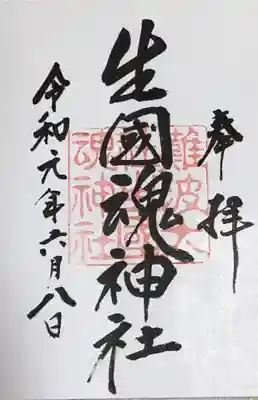 奉拝
生國魂神社
難波大
社生國
魂神社
令和元年六月八日